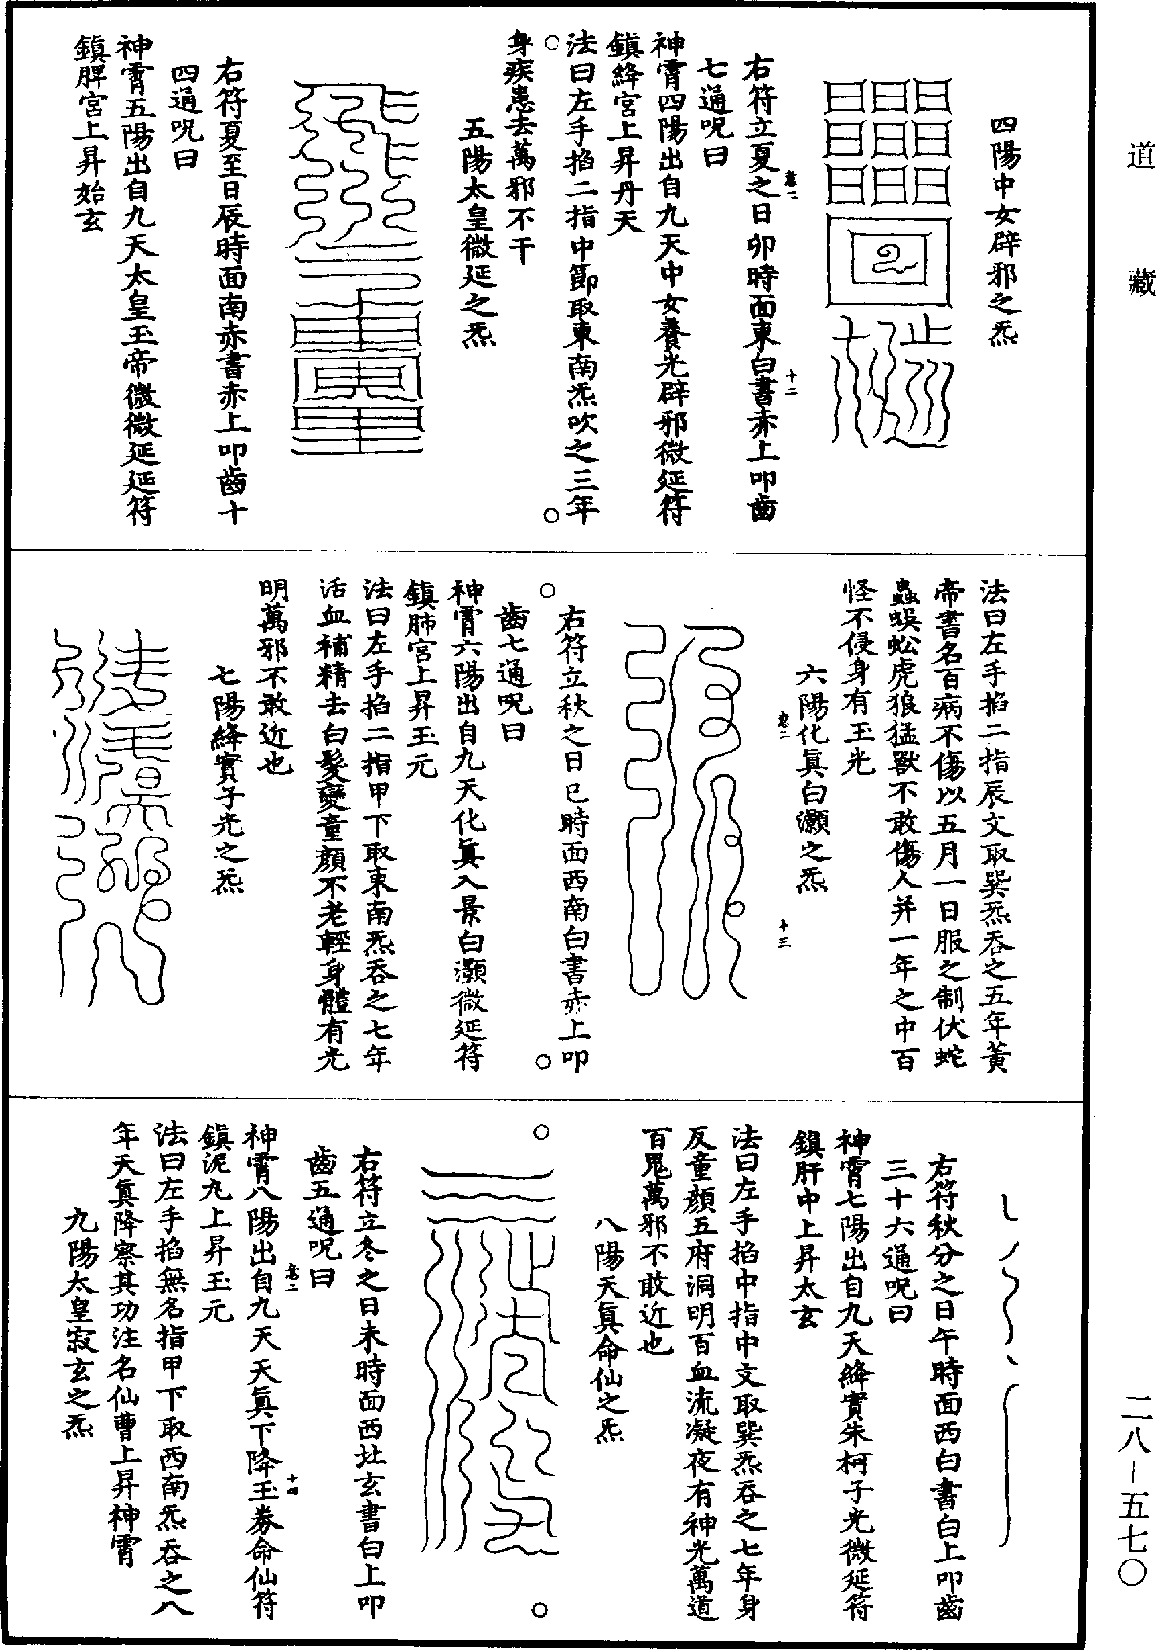 道藏
四陽中女辟邪之炁
右符立夏之日卯時面東白書赤上叩齒
七通呪曰
神霄四陽出自九天中女養光辟邪微延符
鎮絳宮上昇丹天
法曰左手掐二指中節取東南炁吹之三年
身疾患去萬邪不干
五陽太皇微延之炁
右符夏至日辰時面南赤書赤上叩齒十
四通呪曰
神霄五陽出自九天太皇玉帝微微延延符
鎮脾宮上昇始玄
卷二
十二
法曰左手掐二指辰文取巽炁吞之五年黃
帝書名百病不傷以五月一日服之制伏蛇
蟲蜈蚣虎狼猛獸不敢傷人并一年之中百
怪不侵身有玉光
六陽化真白灝之炁
卷二
十三
右符立秋之日巳時面西南白書赤上叩
齒七通呪曰
神霄六陽出自九天化真入景白灝微延符
鎮肺宮上昇玉元
法曰左手掐二指甲下取東南炁吞之七年
活血補精去白髮變童顏不老輕身體有光
明萬邪不敢近也
七陽絳實子光之炁
右符秋分之日午時面西白書白上叩齒
三十六通呪曰
神霄七陽出自九天絳實朱柯子光微延符
鎮肝中上昇太玄
法曰左手掐中指中文取巽炁吞之七年身
反童顏五府洞明百血流凝夜有神光萬道
百鬼萬邪不敢近也
八陽天真命仙之炁
右符立冬之日未時面西北玄書白上叩
齒五通呪曰
卷二
十四
神霄八陽出自九天天真下降玉券命仙符
鎮泥丸上昇玉元
法曰左手掐無名指甲下取西南炁吞之八
年天真降察其功注名仙曹上昇神霄
九陽太皇寂玄之炁
二八－五七〇